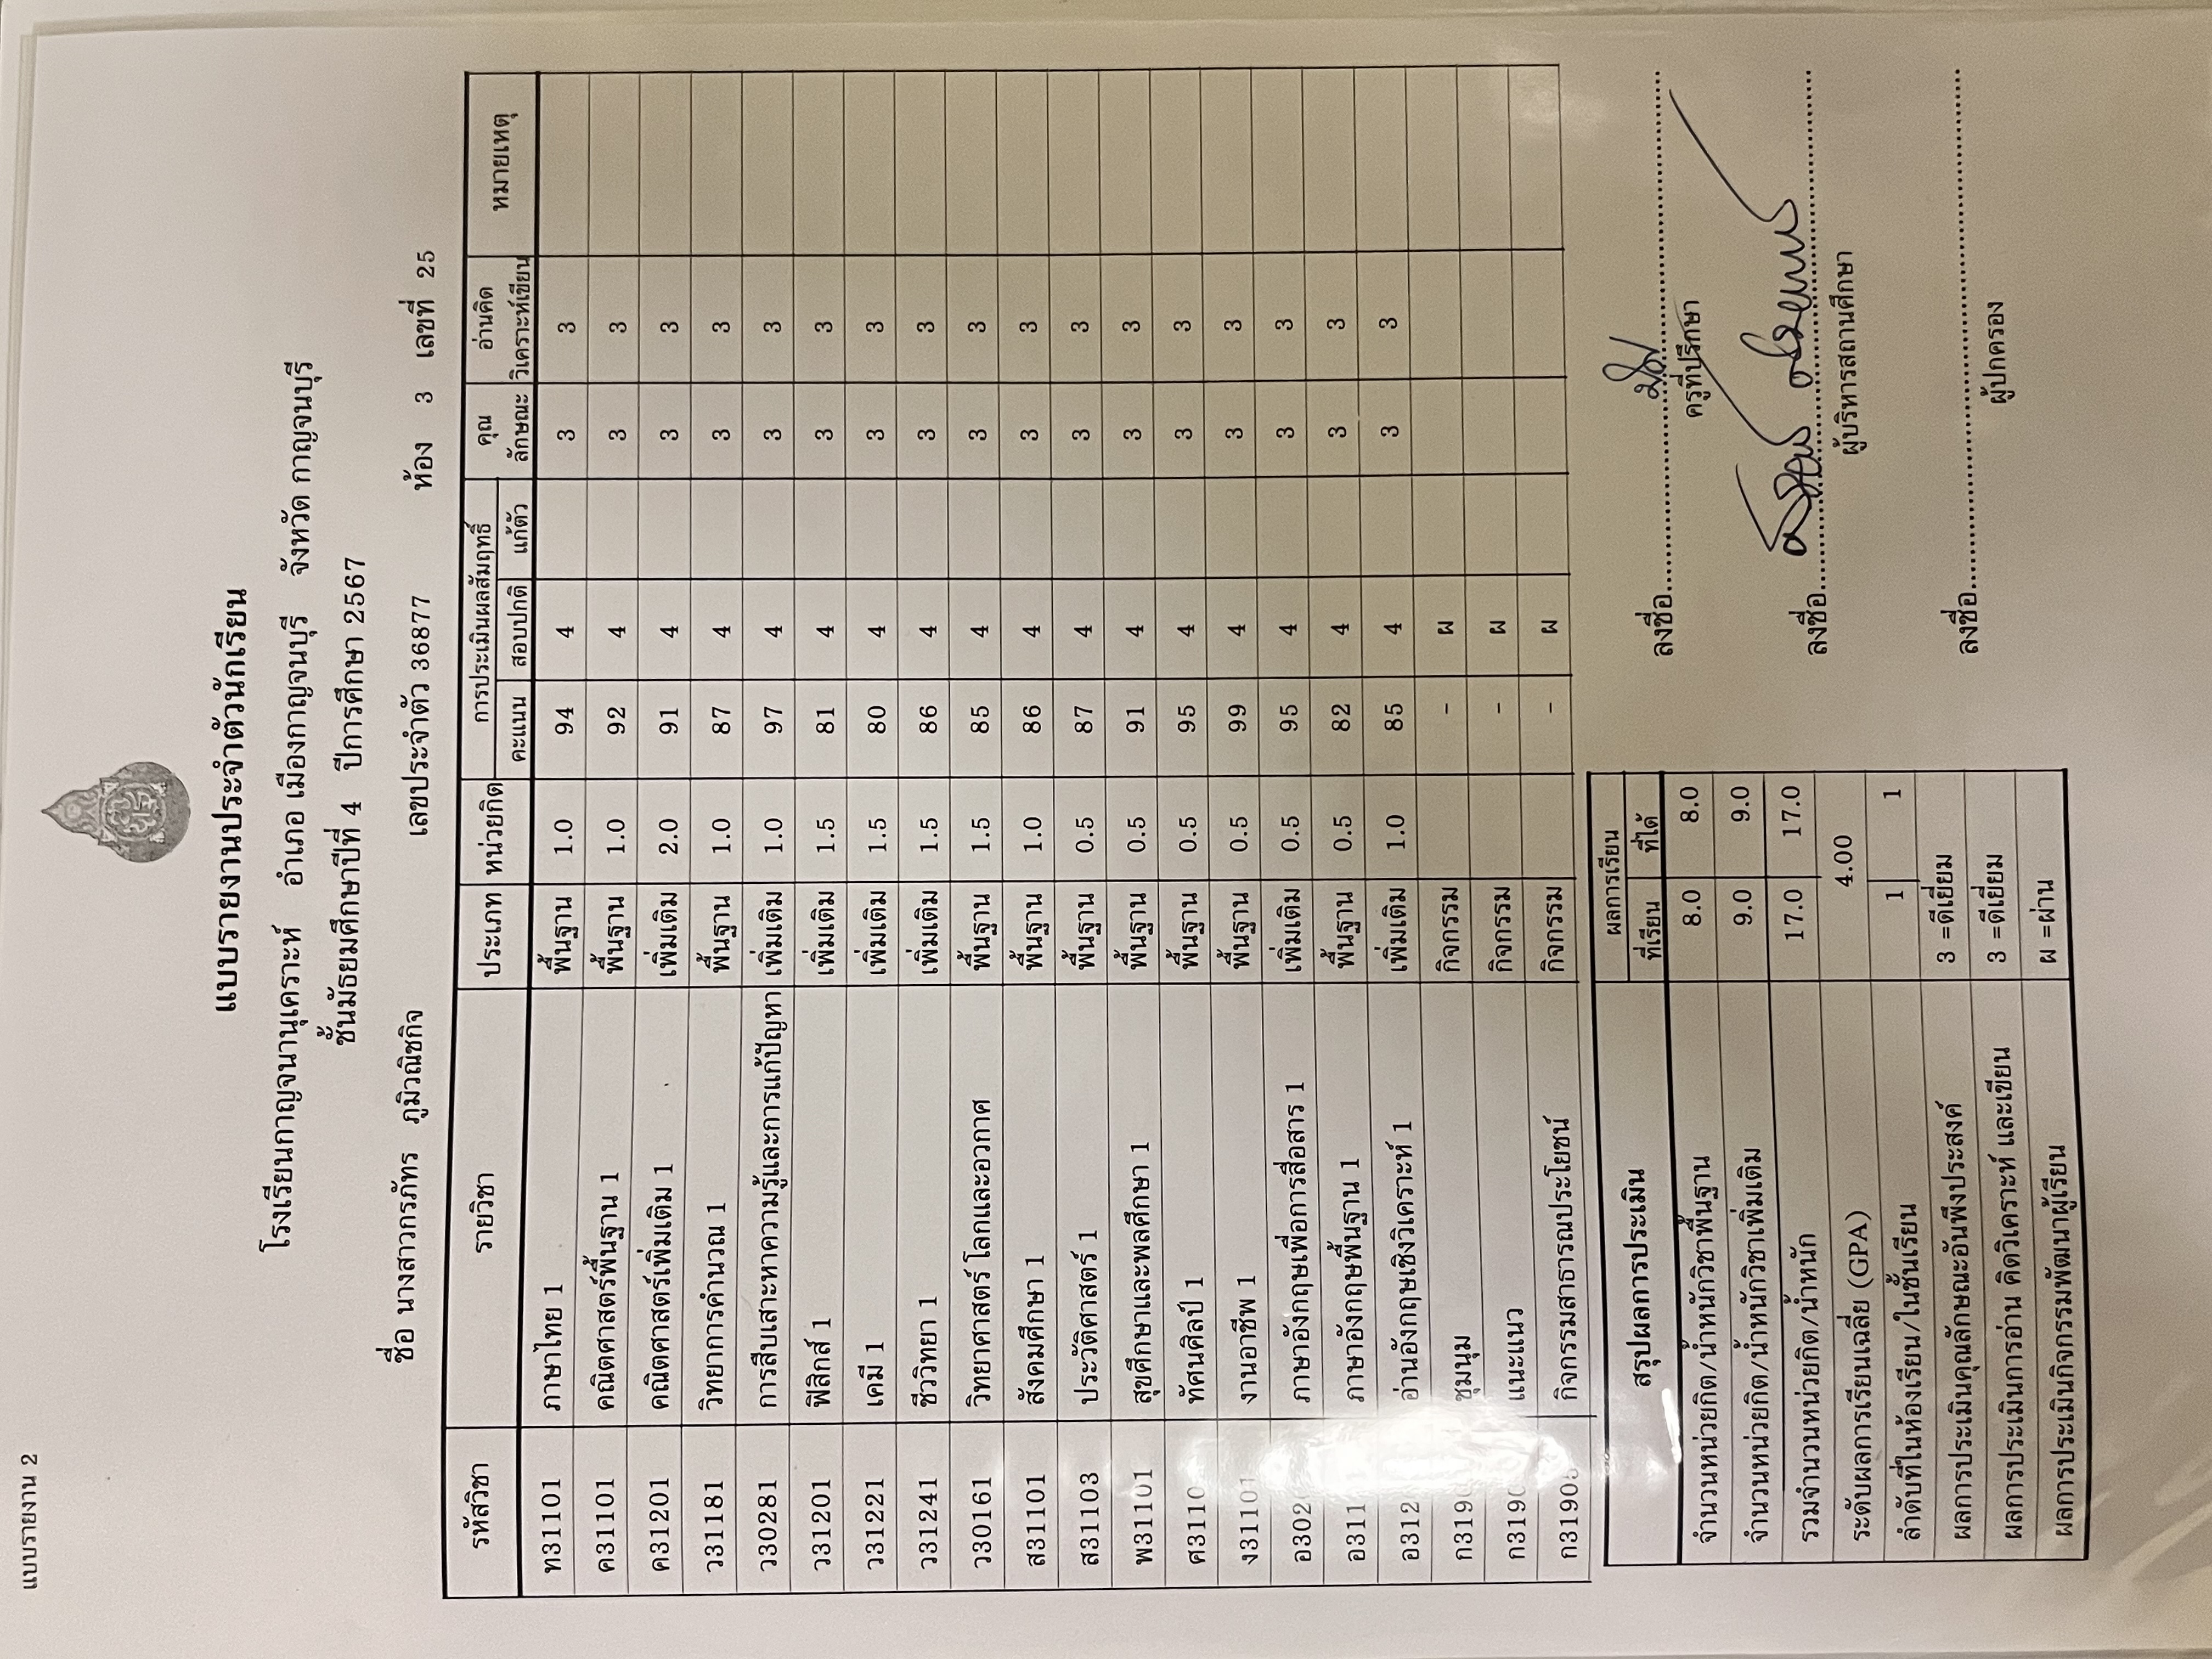 แบบรายงาน 2
แบบรายงานประจำตัวนักเรียน
โรงเรียนกาญจนานุเคราะห์ อำเภอ เมืองกาญจนบุรี จังหวัด กาญจนบุรี
ชั้นมัธยมศึกษาปีที่ 4 ปีการศึกษา 2567
ชื่อ นางสาวกรภัทร ภูมิวณิชกิจ เลขประจำตัว 36877 ห้อง 3 เลขที่ 25
รหัสวิชา รายวิชา ประเภท หน่วยกิต การประเมินผลสัมฤทธิ์ คุณลักษณะ อ่านคิดวิเคราะห์เขียน หมายเหตุ
คะแนน สอบปกติ แก้ตัว
ท31101 ภาษาไทย 1 พื้นฐาน 1.0 94 4 3 3
ค31101 คณิตศาสตร์พื้นฐาน 1 พื้นฐาน 1.0 92 4 3 3
ค31201 คณิตศาสตร์เพิ่มเติม 1 เพิ่มเติม 2.0 91 4 3 3
ว31181 วิทยาการคำนวณ 1 พื้นฐาน 1.0 87 4 3 3
ว30281 การสืบเสาะหาความรู้และการแก้ปัญหา เพิ่มเติม 1.0 97 4 3 3
ว31201 ฟิสิกส์ 1 เพิ่มเติม 1.5 81 4 3 3
ว31221 เคมี 1 เพิ่มเติม 1.5 80 4 3 3
ว31241 ชีววิทยา 1 เพิ่มเติม 1.5 86 4 3 3
ว30161 วิทยาศาสตร์ โลกและอวกาศ พื้นฐาน 1.5 85 4 3 3
ส31101 สังคมศึกษา 1 พื้นฐาน 1.0 86 4 3 3
ส31103 ประวัติศาสตร์ 1 พื้นฐาน 0.5 87 4 3 3
พ31101 สุขศึกษาและพลศึกษา 1 พื้นฐาน 0.5 91 4 3 3
ศ3110 ทัศนศิลป์ 1 พื้นฐาน 0.5 95 4 3 3
ง31101 งานอาชีพ 1 พื้นฐาน 0.5 99 4 3 3
อ302 ภาษาอังกฤษเพื่อการสื่อสาร 1 เพิ่มเติม 0.5 95 4 3 3
อ311 ภาษาอังกฤษพื้นฐาน 1 พื้นฐาน 0.5 82 4 3 3
อ312 อ่านอังกฤษเชิงวิเคราะห์ 1 เพิ่มเติม 1.0 85 4 3 3
ก319 ชุมนุม กิจกรรม - ผ
ก319 แนะแนว กิจกรรม - ผ
ก3190 กิจกรรมสาธารณประโยชน์ กิจกรรม - ผ
สรุปผลการประเมิน ผลการเรียน
ที่เรียน ที่ได้
จำนวนหน่วยกิต/น้ำหนักวิชาพื้นฐาน 8.0 8.0
จำนวนหน่วยกิต/น้ำหนักวิชาเพิ่มเติม 9.0 9.0
รวมจำนวนหน่วยกิต/น้ำหนัก 17.0 17.0
ระดับผลการเรียนเฉลี่ย (GPA) 4.00
ลำดับที่ในห้องเรียน/ในชั้นเรียน 1 1
ผลการประเมินคุณลักษณะอันพึงประสงค์ 3 =ดีเยี่ยม
ผลการประเมินการอ่าน คิดวิเคราะห์ และเขียน 3 =ดีเยี่ยม
ผลการประเมินกิจกรรมพัฒนาผู้เรียน ผ =ผ่าน
ลงชื่อ
ครูที่ปรึกษา
ลงชื่อ
ผู้บริหารสถานศึกษา
ลงชื่อ
ผู้ปกครอง